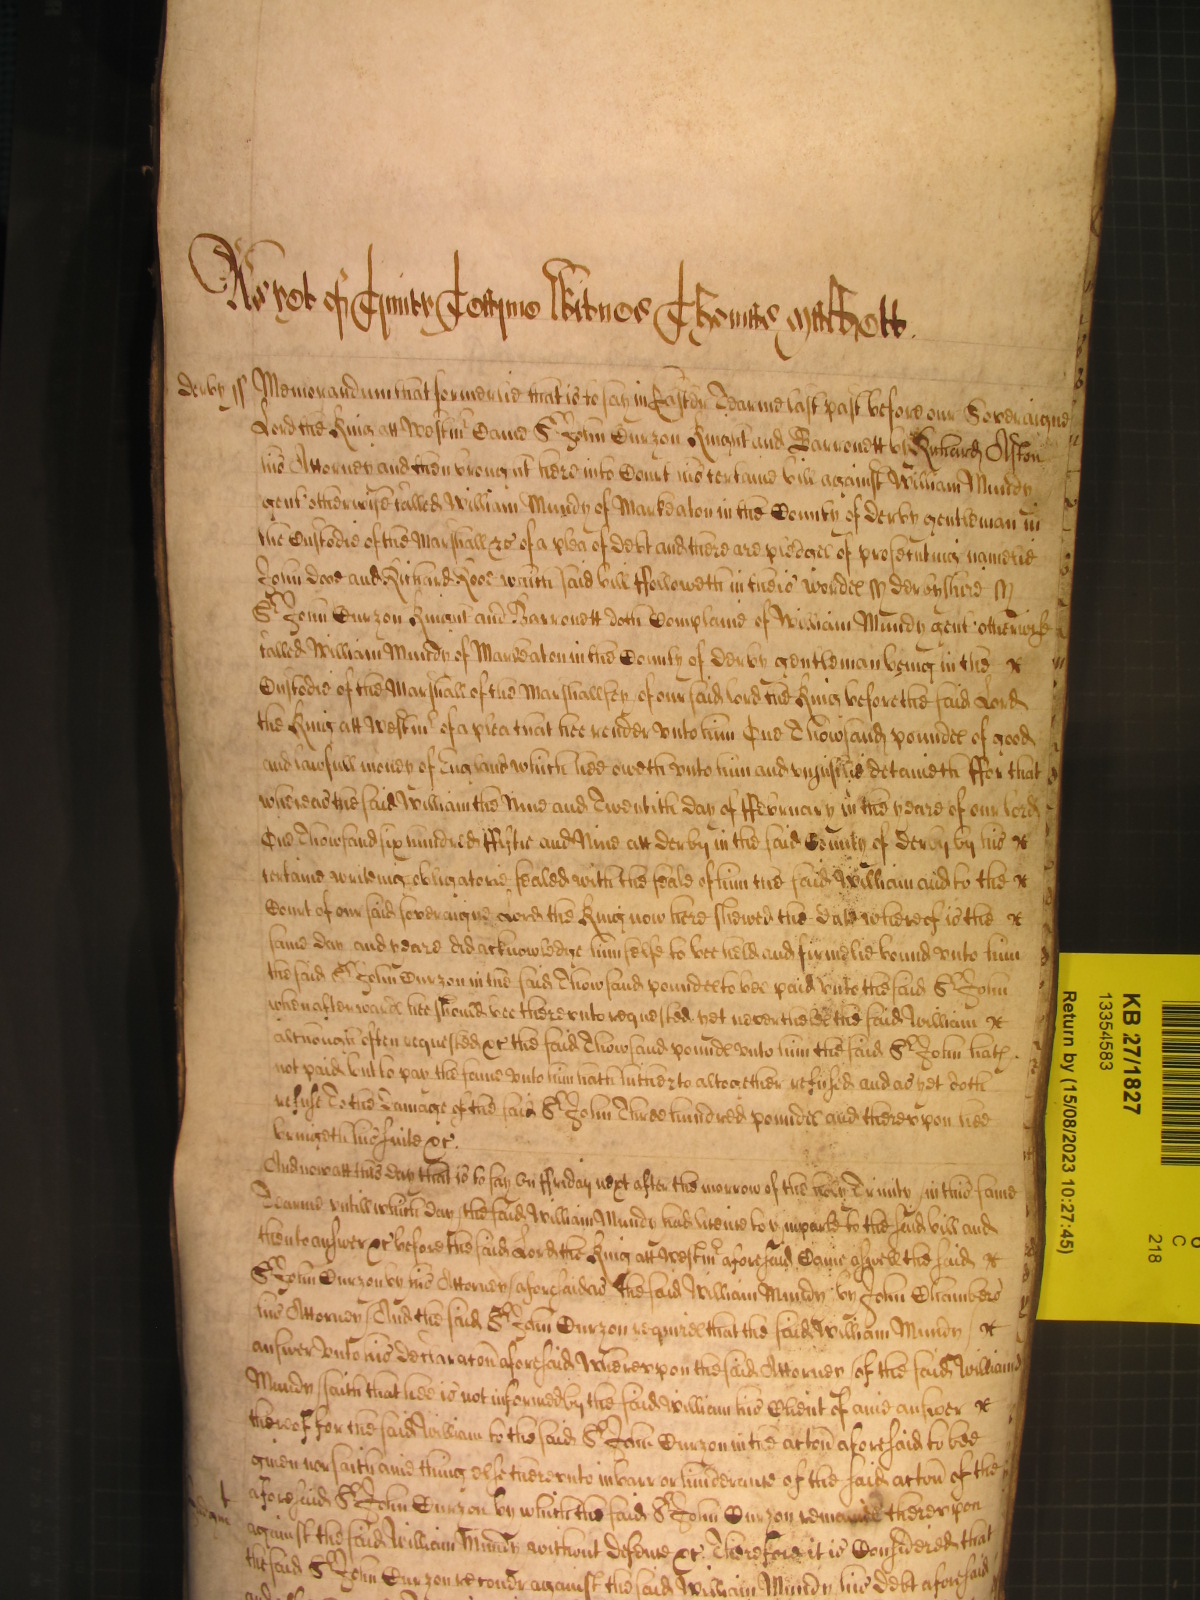 As yet of Trinity Tearme Witnes Thomas Mallett.
derby ss Memorandum that formerlie that is to say in Easter Tearme last past before our Soveraigne
Lord the King att Westmr Came Sr John Curzon Knight and Barronett by Richard Alston
his Attorney and then brought here into Court his certaine bill against William Mundy
gent otherwise called William Mundy of Markeaton in the County of derby gentleman in
the Custodie of the Marshall &c of a plea of debt and there are pledges of prosecuting namelie
John doe and Richard Roe which said bill ffolloweth in theis wordes ss derbyshire ss
Sr John Curzon Knight and Barronett doth Complaine of William Mundy gent otherwise
called William Mundy of Markeaton in the County of derby gentleman being in the
Custodie of the Marshall of the Marshallsey of our said lord the King before the said Lord
the King att Westmr of a plea that hee render unto him One Thowsand poundes of good
and lawfull money of England which hee oweth unto him and unjustlie detaineth ffor that
whereas the said William the Nine and Twentith day of ffebruary in the yeare of our lord
One Thowsand six hundred ffiftie and Nine att derby in the said County of derby by his
certaine writeing obligatorie sealed with the seale of him the said William and to the
Court of our said soveraigne Lord the King now here shewed the date whereof is the
same day and yeare did acknowledge himselfe to bee held and firmelie bound unto him
the said Sr John Curzon in the said Thowsand poundes to bee paid unto the said Sr John
when afterwards hee should bee thereunto requested yet neverthelesse the said William
although often requested &c the said Thowsand poundes unto him the said Sr John hath
not paid but to pay the same unto him hath hitherto altogether refused and as yet doth
refuse To the damage of the said Sr John Three hundred poundes and thereupon hee
bringeth his suite &c.
And now att this day that is to say on ffriday next after the morrow of the holy Trinity in this same
Tearme untill which day the said William Mundy had licence to imparle to the said bill and
then to answer &c before the said Lord the King att Westmr aforesaid Came aswell the said
Sr John Curzon by his Attorney aforesaid as the said William Mundy by John Chambers
his Attorney And the said Sr John Curzon requires that the said William Mundy
answer unto his declaracon aforesaid Whereupon the said Attorney of the said William
Mundy saith that hee is not informed by the said William his Client of anie answer
thereof for the said William to the said Sr John Curzon in the accon aforesaid to bee
given nor saith anie thing else thereunto in barr or hinderance of the said accon of the
aforesaid Sr John Curzon by which the said Sr John Curzon remaines thereupon
against the said William Mundy without defence &c. Therefore it is Considered that
the said Sr John Curzon recover against the said William Mundy his debt aforesaid
KB 27/1827
13354583
Return by (15/08/2023 10:27:45)
C
218